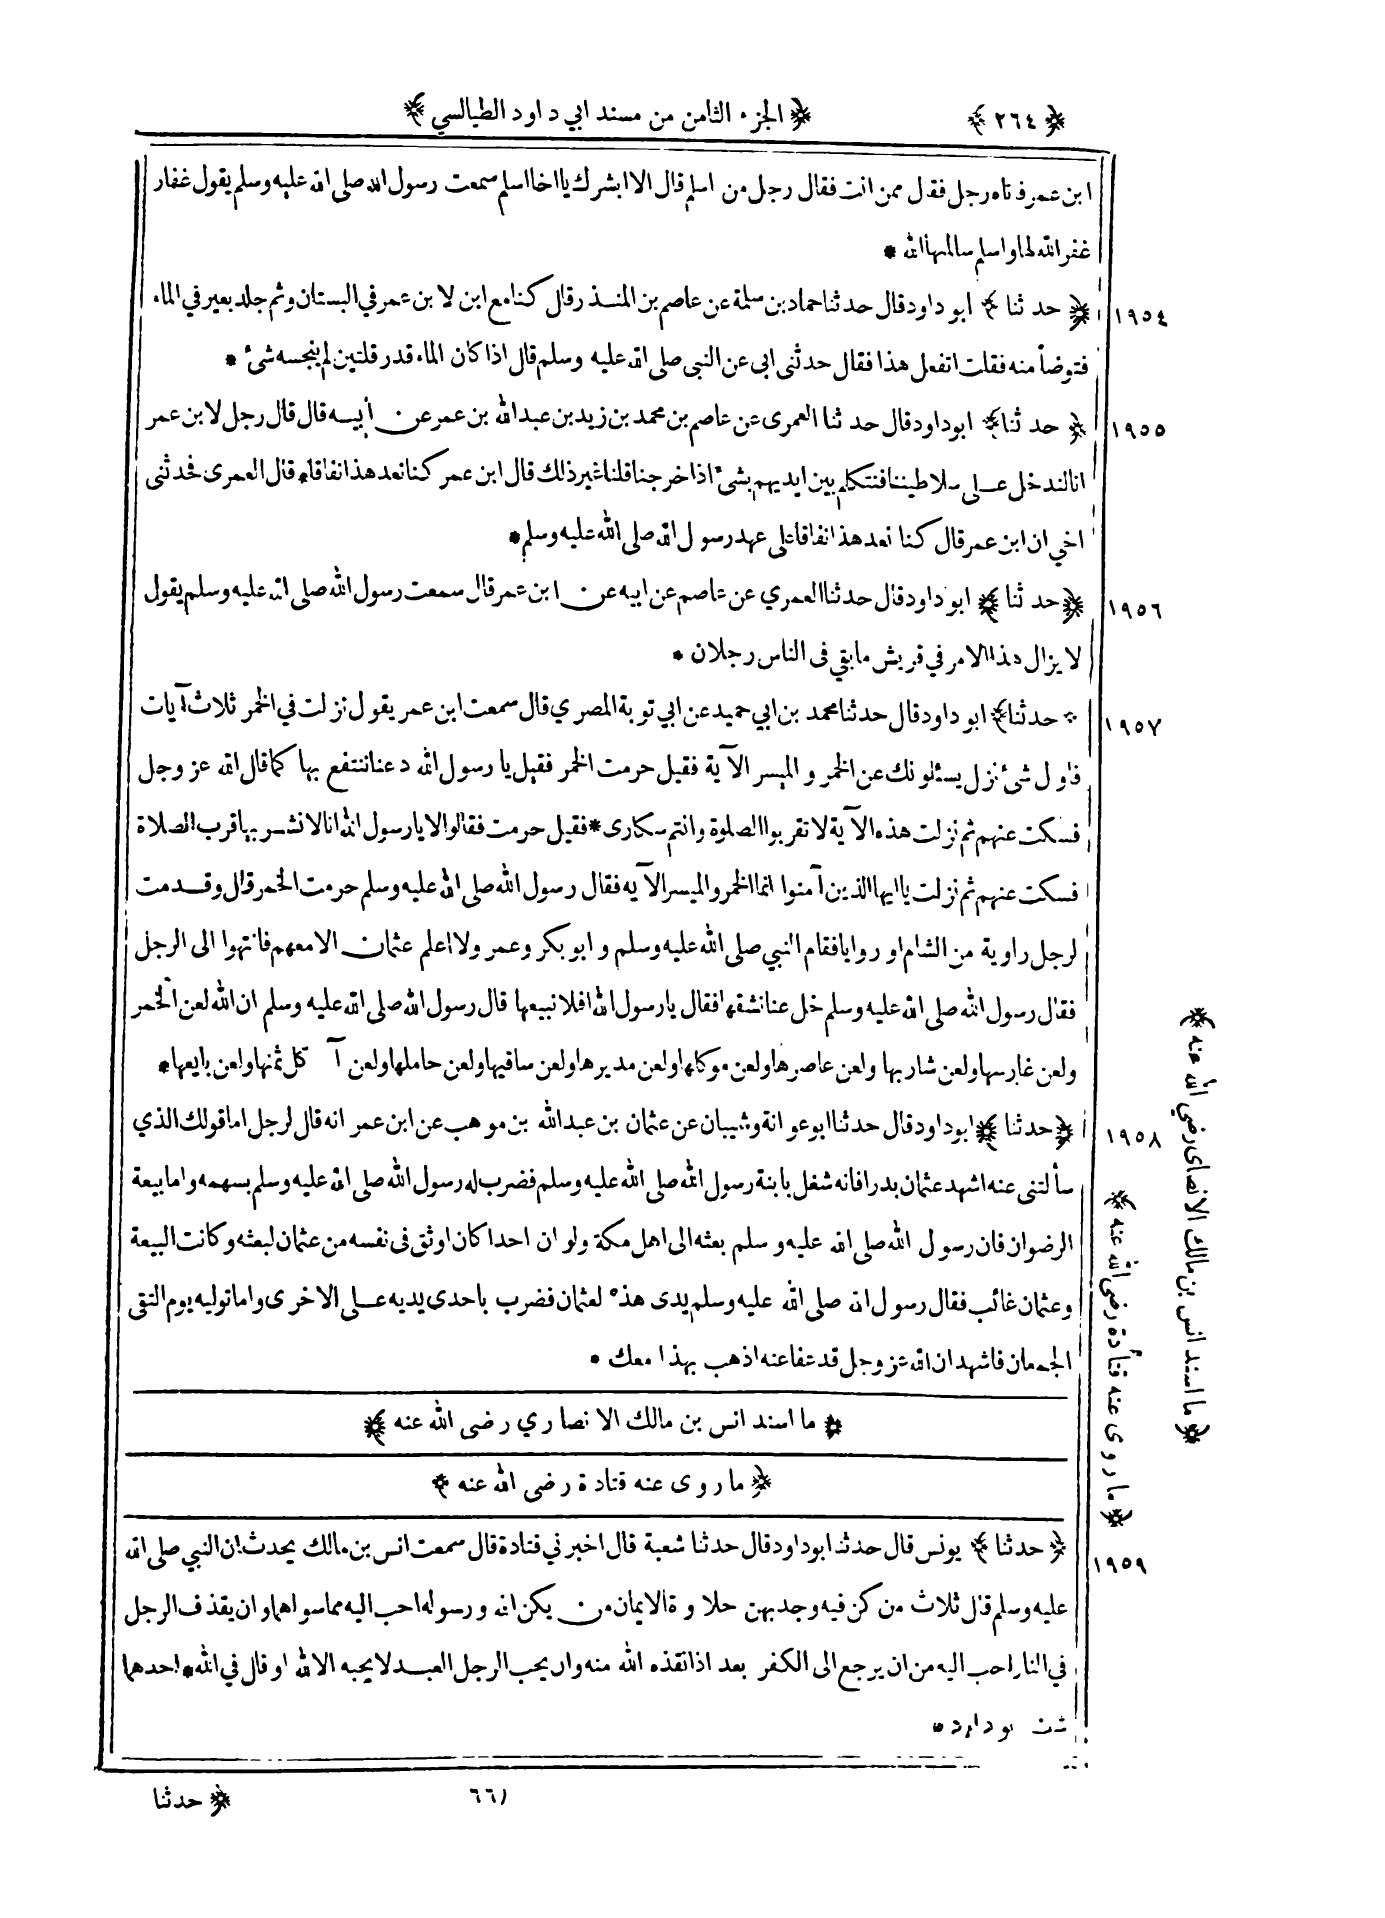 ﴿ ٢٦٤ ﴾ ﴿ الجزء الثامن من مسند ابي داود الطيالسي ﴾
ابن عمر فتاه رجل فقال ممن انت فقال رجل من اسلم قال الا ابشرك يا اخا اسلم سمعت رسول الله صلى الله عليه وسلم يقول غفار
غفر الله لها واسلم سالمها الله *
١٩٥٤ ﴿ حدثنا ﴾ ابو داود قال حدثنا حماد بن سلمة عن عاصم بن المنذر قال كنا مع ابن لابن عمر في البستان وثم جلد بعير في الماء
فتوضأ منه فقلت اتفعل هذا فقال حدثنى ابى عن النبي صلى الله عليه وسلم قال اذا كان الماء قدر قلتين لم ينجسه شئ *
١٩٥٥ ﴿ حدثنا ﴾ ابو داود قال حدثنا العمرى عن عاصم بن محمد بن زيد بن عبد الله بن عمر عن أبيه قال قال رجل لابن عمر
انا لندخل على سلاطيننا فنتكلم بين ايديهم بشئ اذا خرجنا قلنا غير ذلك قال ابن عمر كنا نعد هذا نفاقا * قال العمرى فحدثنى
اخي ان ابن عمر قال كنا نعد هذا نفاقا على عهد رسول الله صلى الله عليه وسلم *
١٩٥٦ ﴿ حدثنا ﴾ ابو داود قال حدثنا العمري عن عاصم عن ابيه عن ابن عمر قال سمعت رسول الله صلى الله عليه وسلم يقول
لا يزال هذا الامر في قريش ما بقي فى الناس رجلان *
١٩٥٧ ﴿ حدثنا ﴾ ابو داود قال حدثنا محمد بن ابي حميد عن ابي توبة المصري قال سمعت ابن عمر يقول نزلت في الخمر ثلاث آيات
فاول شئ نزل يسئلونك عن الخمر و الميسر الآية فقيل حرمت الخمر فقيل يا رسول الله دعنا ننتفع بها كما قال الله عز وجل
فسكت عنهم ثم نزلت هذه الآية لا تقربوا الصلوة وانتم سكارى * فقيل حرمت فقالوا لا يا رسول الله انا لا نشربها قرب الصلاة
فسكت عنهم ثم نزلت يا ايها الذين آمنوا انما الخمر والميسر الآيه فقال رسول الله صلى الله عليه وسلم حرمت الخمر قال وقدمت
لرجل راوية من الشام او روايا فقام النبي صلى الله عليه وسلم و ابو بكر وعمر ولا اعلم عثمان الا معهم فانتهوا الى الرجل
فقال رسول الله صلى الله عليه وسلم خل عنا نشقها فقال يا رسول الله افلا نبيعها قال رسول الله صلى الله عليه وسلم ان الله لعن الخمر
ولعن غارسها ولعن شاربها ولعن عاصرها ولعن موكلها ولعن مديرها ولعن ساقيها ولعن حاملها ولعن آكل ثمنها ولعن بايعها *
١٩٥٨ ﴿ حدثنا ﴾ ابو داود قال حدثنا ابو عوانة وشيبان عن عثمان بن عبد الله بن موهب عن ابن عمر انه قال لرجل اما قولك الذي
سألتنى عنه اشهد عثمان بدرا فانه شغل بابنة رسول الله صلى الله عليه وسلم فضرب له رسول الله صلى الله عليه وسلم بسهمه واما بيعة
الرضوان فان رسول الله صلى الله عليه وسلم بعثه الى اهل مكة ولو ان احدا كان اوثق فى نفسه من عثمان لبعثه وكانت البيعة
وعثمان غائب فقال رسول الله صلى الله عليه وسلم يدى هذه لعثمان فضرب باحدى يديه على الاخرى واما توليه يوم التقى
الجمعان فاشهد ان الله عز وجل قد عفا عنه اذهب بهذا معك *
﴿ ما اسند انس بن مالك الانصاري رضى الله عنه ﴾
﴿ ما روى عنه قتادة رضى الله عنه ﴾
١٩٥٩ ﴿ حدثنا ﴾ يونس قال حدثنا ابو داود قال حدثنا شعبة قال اخبرني قتادة قال سمعت انس بن مالك يحدث ان النبي صلى الله
عليه وسلم قال ثلاث من كن فيه وجد بهن حلاوة الايمان من يكن الله ورسوله احب اليه مما سواهما وان يقذف الرجل
في النار احب اليه من ان يرجع الى الكفر بعد اذ انقذه الله منه وان يحب الرجل العبد لا يحبه الا لله او قال في الله * احدهما
داود *
﴿ ما اسند انس بن مالك الانصاى رضي الله عنه ﴾
﴿ ما روى عنه قتادة رضى الله عنه ﴾
٦٦١
﴿ حدثنا